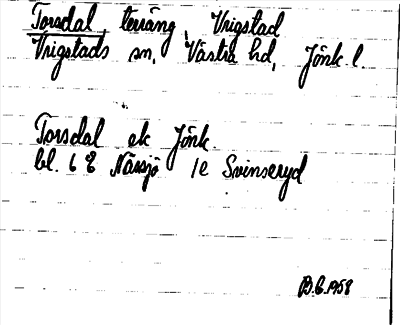 Torsdal, terräng, Vrigstad
Vrigstads sn, Västra hd, Jönk l.
Torsdal ek Jönk.
bl. 6 E Nässjö 1e Svinseryd
B.G. 1958